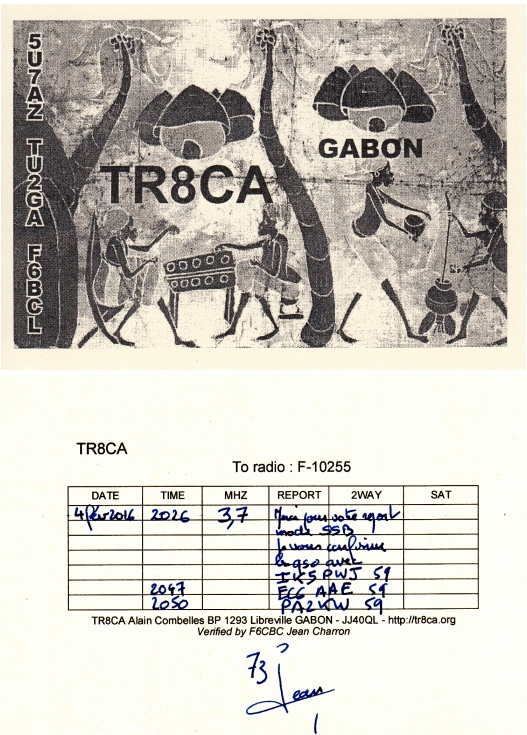 5U7AZ TU2GA F6BCL
GABON
TR8CA
TR8CA
To radio : F-10255
DATE TIME MHZ REPORT 2WAY SAT
4 fév 2016 2026 3,7 Merci pour votre report
mode SSB
je vous confirme
le qso avec
IK5PWJ 59
2047 EC6 AAE 59
2050 PA2KW 59
TR8CA Alain Combelles BP 1293 Libreville GABON - JJ40QL - http://tr8ca.org
Verified by F6CBC Jean Charron
73
Jean